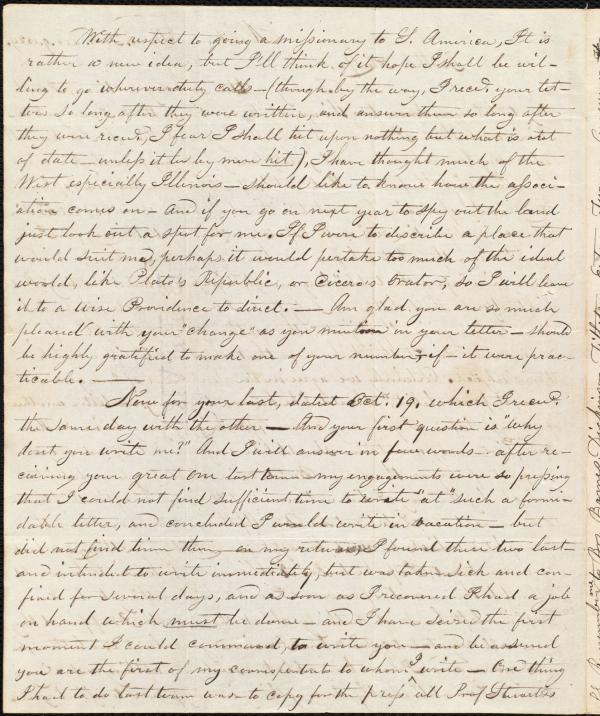 With respect to going a missionary to S. America, It is
rather a new idea, but I'll think of it hope I shall be wil-
ling to go wherever duty calls — (though by the way, I recd. your let-
ters so long after they were written, and answer them so long after
they were recievd, I fear I shall hit upon nothing but what is out
of date — unless it be by mere hit), I have thought much of the
West especially Illinois — should like to know how the associ-
ation comes on — And if you go on next year to spy out the land
just look out a spot for me. If I were to describe a place that
would suit me, perhaps it would partake too much of the ideal
world, like Plato's Republic, or Cicero's Orator, so I will leave
it to a Wise Providence to direct. — Am glad you are so much
pleased with your "change" as you mention in your letter — should
be highly gratified to make one of your number, if — it were prac-
ticable. —
Now for your last, dated Oct. 19. which I recd.
the same day with the other — And your first question is "Why
dont you write me?" And I will answer in few words — after re-
ceiving your great one last term — my engagements were so pressing
that I could not find sufficient time to write "at" such a formi-
dable letter, and concluded I would write in vacation — but
did not find time then, on my return, I found these two last
and intended to write immediately, but was taken sick and con-
fined for several days, and as soon as I recovered I had a job
on hand which must be done — and I have seized the first
moment I could command, to write you — and be assured
you are the first of my correspondents to whom I write — One thing
I had to do last term was to copy for the press all Prof Stuart's